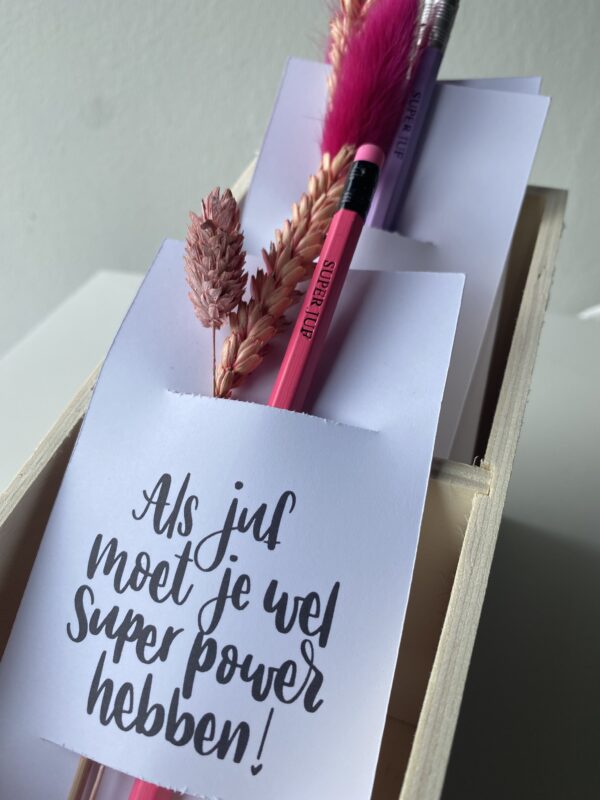 SUPER JUF
SUPER JUF
Als juf
moet je wel
Super power
hebben!